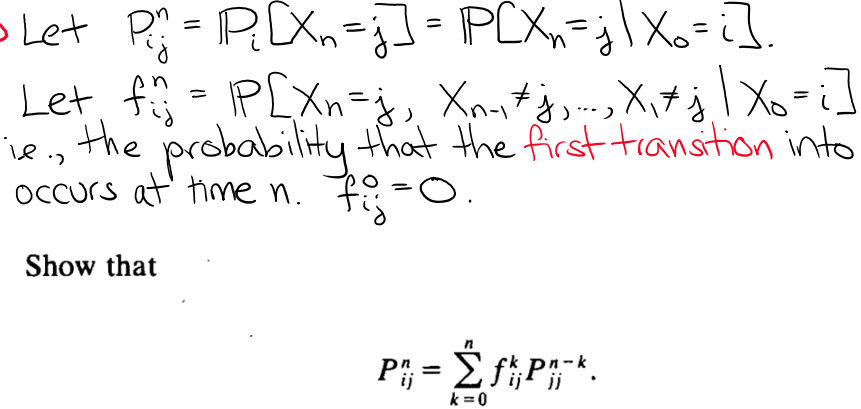 Let Pⁿᵢⱼ = ℙᵢ[Xₙ=j] = ℙ[Xₙ=j | X₀=i].
Let fⁿᵢⱼ = ℙ[Xₙ=j, Xₙ₋₁≠j, ..., X₁≠j | X₀=i]
ie., the probability that the first transition into
occurs at time n. f⁰ᵢⱼ=0.
Show that
Pⁿᵢⱼ = ∑ₖ₌₀ⁿ fᵏᵢⱼ Pⁿ⁻ᵏⱼⱼ.